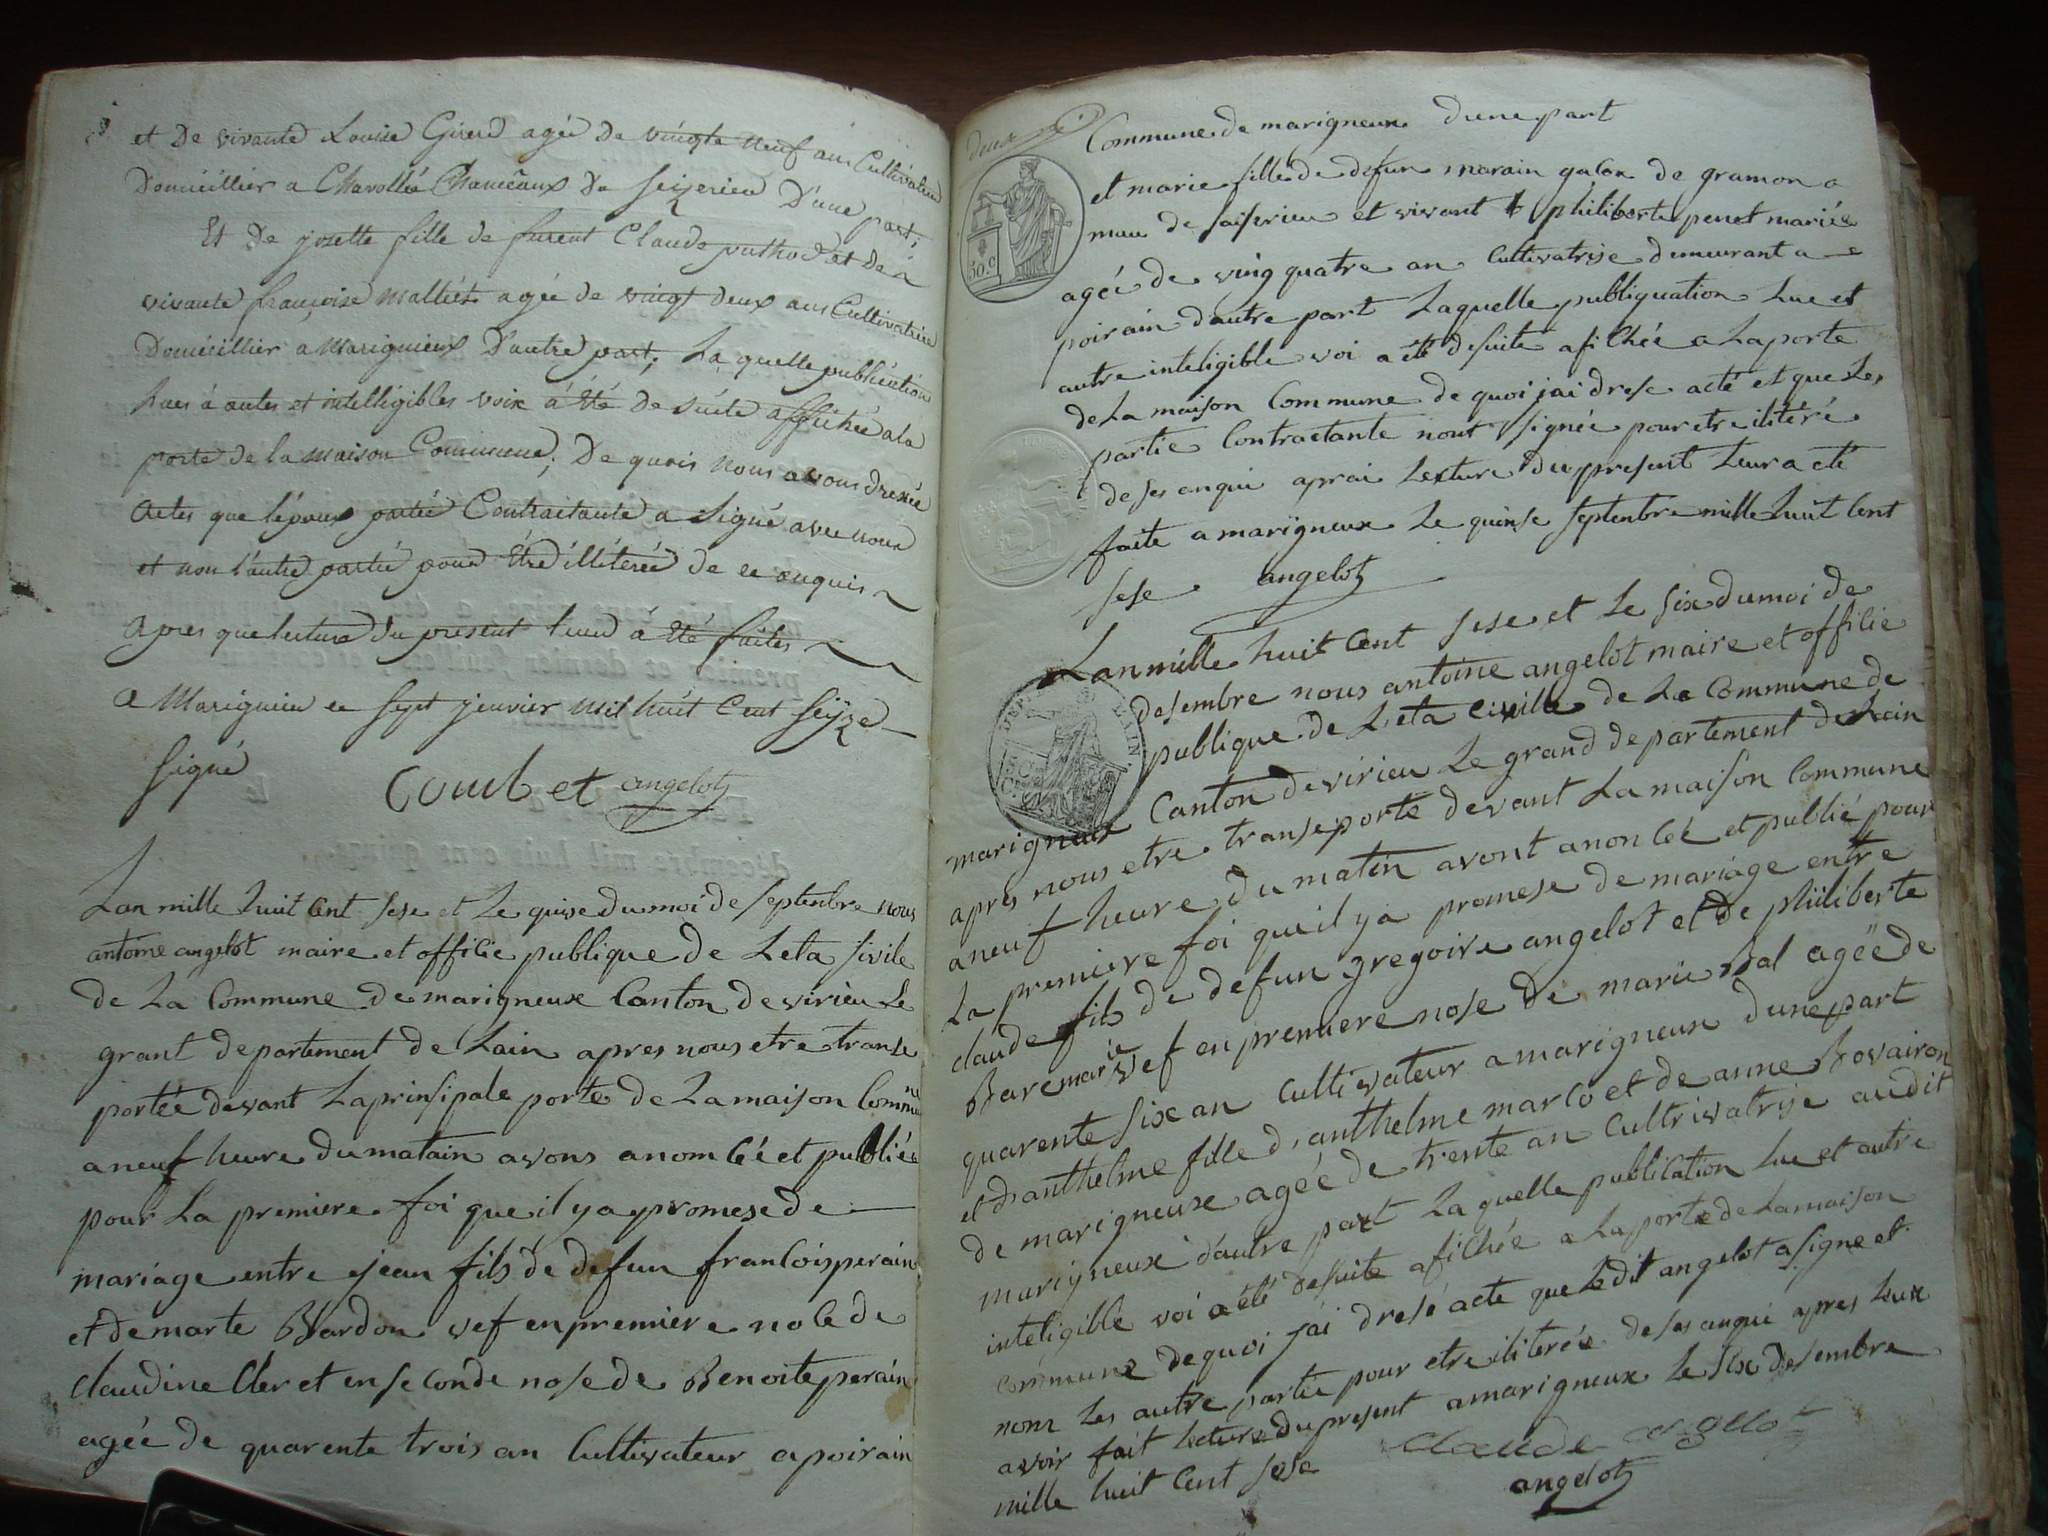 et De vivante Louise Girerd agée de vingte neuf ans Cultivateur
Domicillier a Chavollée Chanceaux De Seizerieu D'une part;
Et De josette fille de furent Claude puthod et de
vivante françoise Malliet agée de vingt deux ans Cultivatrice
Domicillier a Marignieux D'autre part; La quelle publication
Lues á autes et intelligibles voix á été De suéte affichée a la
porte de la maison Commune; De quois nous avons dressée
actes que l'époux partie Contraitante a signé avec nous
et non l'autre partié pour être illitérée de ce enquis
apres que lecture du present leurs á été faites
a Marignieu ce sept jenvier mil huit Cent seijze
signé
Comb et angelot
Lan mille huit Cent sese et Le quise du moi de septenbre nous
antoine angelot maire et offilie publique de Leta sivile
de La Commune de marigneux Canton de virieu Le
grant departement de Lain apres nous etre transe
portée devant La prinsipale porte de La maison Commune
a neuf heure du matain avons anomCéé et publiée
pour La premiere foi que il y a promese de
mariage entre jean fils de defun franCois perain
et de marte Bardon vef en premiere noCe de
Claudine Cler et en seConde nose de Benoite perain
agée de quarente trois an Cultivateur a poirain
deux
Commune de marigneux dune part
et marie fille de defun marain galon de gramon a
mau de saiserieu et vivant philiberte penet mariée
agée de ving quatre an Cultivatrise demeurant a
poirain dautre part Laquelle publiquation Lue et
autre inteligible voi a été desuite afichée a La porte
de La maison Commune de quoi jai drese acté et que Les
partie Contractante nont signée pour etre iliteré
de ses enqui aprai Lexture du present Leur a eté
faite a marigneux Le quinse septenbre mille huit Cent
sese angelot
50 c
Lan mille huit Cent sese et Le six du moi de
desembre nous antoine angelot maire et offilie
publique de Leta civille de La Commune de
marigneux Canton de virieu Le grand departement de Lain
apres nous etre transeporté devant La maison Commune
a neuf heure du matin avont anonCéé et publié pour
La premiere foi que il y a promese de mariage entre
claude fils de defun gregoire angelot et de philiberte
Baremarie vef en premiere nose de marie Bal agée de
quarente six an Cultivateur a marigneux dune part
et danthelme fille d'anthelme marCo et de anne Bovairon
de marigneux agée de trente an Cultrivatrise audit
marigneux dautre part La quelle publication Lue et autre
inteligible voi a été desuite afichée a La porte de La maison
commune de quoi jai dresé acte que Ledit angelot a signe et
nom Les autre partie pour etre iliterée de ses anqui apres Leux
avoir fait lecture du present a marigneux Le six desembre
mille huit Cent sese
claude angelot
angelot